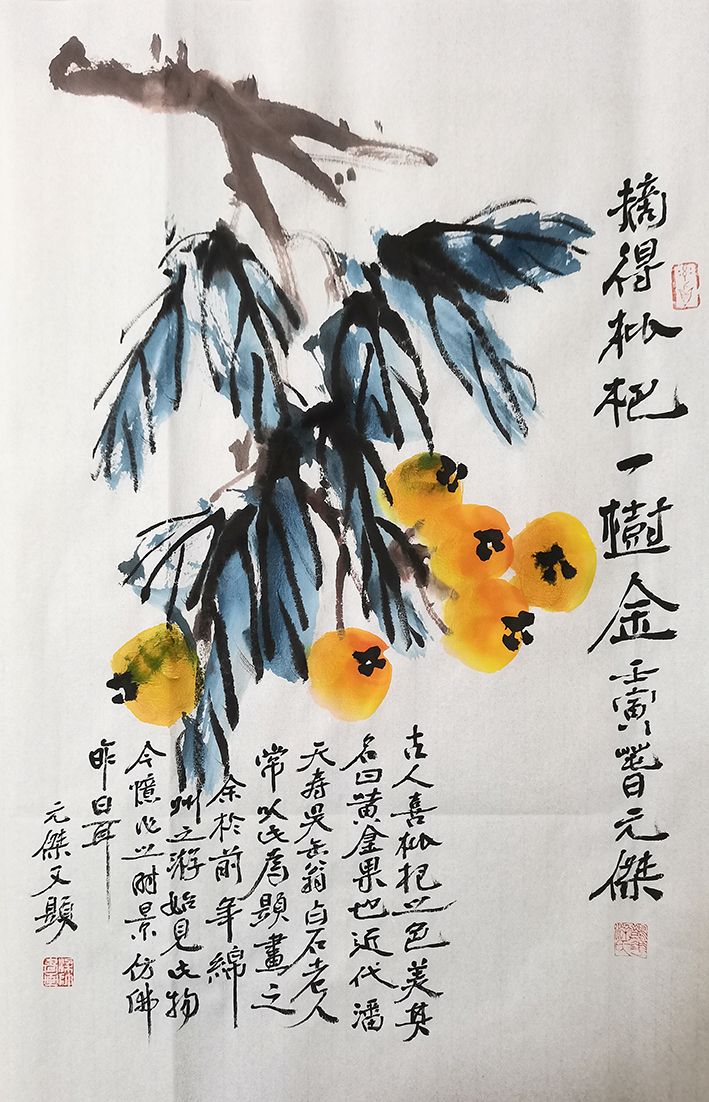 摘得枇杷一樹金 壬寅旾元傑
古人喜枇杷以色美其
名曰黄金果也近代潘
天寿吴缶翁白石老人
常以此為題畫之
余於前年綿
州之游始見此物
今憶时景仿佛
昨日耳
元傑又題